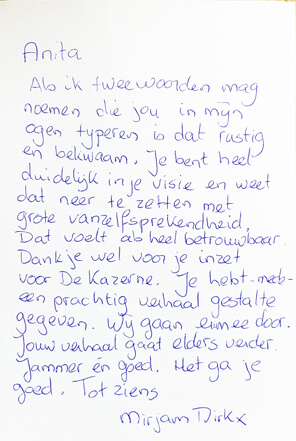 Anita
Als ik twee woorden mag
noemen die jou in mijn
ogen typeren is dat rustig
en bekwaam. Je bent heel
duidelijk in je visie en weet
dat neer te zetten met
grote vanzelfsprekendheid.
Dat voelt als heel betrouwbaar.
Dank je wel voor je inzet
voor De Kazerne. Je hebt mede
een prachtig verhaal gestalte
gegeven. Wij gaan ermee door.
Jouw verhaal gaat elders verder.
Jammer én goed. Het ga je
goed. Tot ziens
Mirjam Dirkx